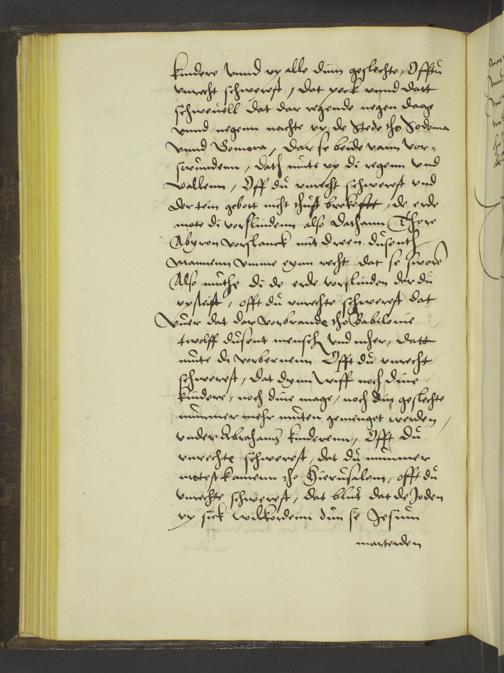 kindere vnnd vp alle dinn geslechte, Offtu
vnrecht schwerest, dat peck vnnd datt
schweuell dat dar regende negen dage
vnnd negenn nachte vp de Stede tho Sodoma
vnnd Gomora, dar se beide vann vor-
swundenn, dath mute vp di regenn vnd
vallenn, Off du vnrecht schwerest vnd
der tein gebott nicht, de erde
mote di vorslindenn also Dathann Chore
Abyron vorslanck mit dreen dusenth
Mannenn vmme eynn recht dat se sworen
Also muthe di de erde vorslinden dar du
vp steist, offt du vnrechte schwerest dat
vuer dat dar vorbrande tho Babilonie
twolff dusent mensch vnd meher, datt
mute di vorbernenn Offt du vnrecht
schwerest, dat dynn wiff noch dine
kindere, noch dine mage, noch din geslechte
nummer mehr muten gemenget werden,
vnder Abrahams kinderenn, Offt du
vnrechte schwerest, dat du nummer
motest kamenn tho Hierusalem, offt du
vnrechte schwerest, dat blut dat de Joden
vp sick wilkordenn dun se Jesum
marterden